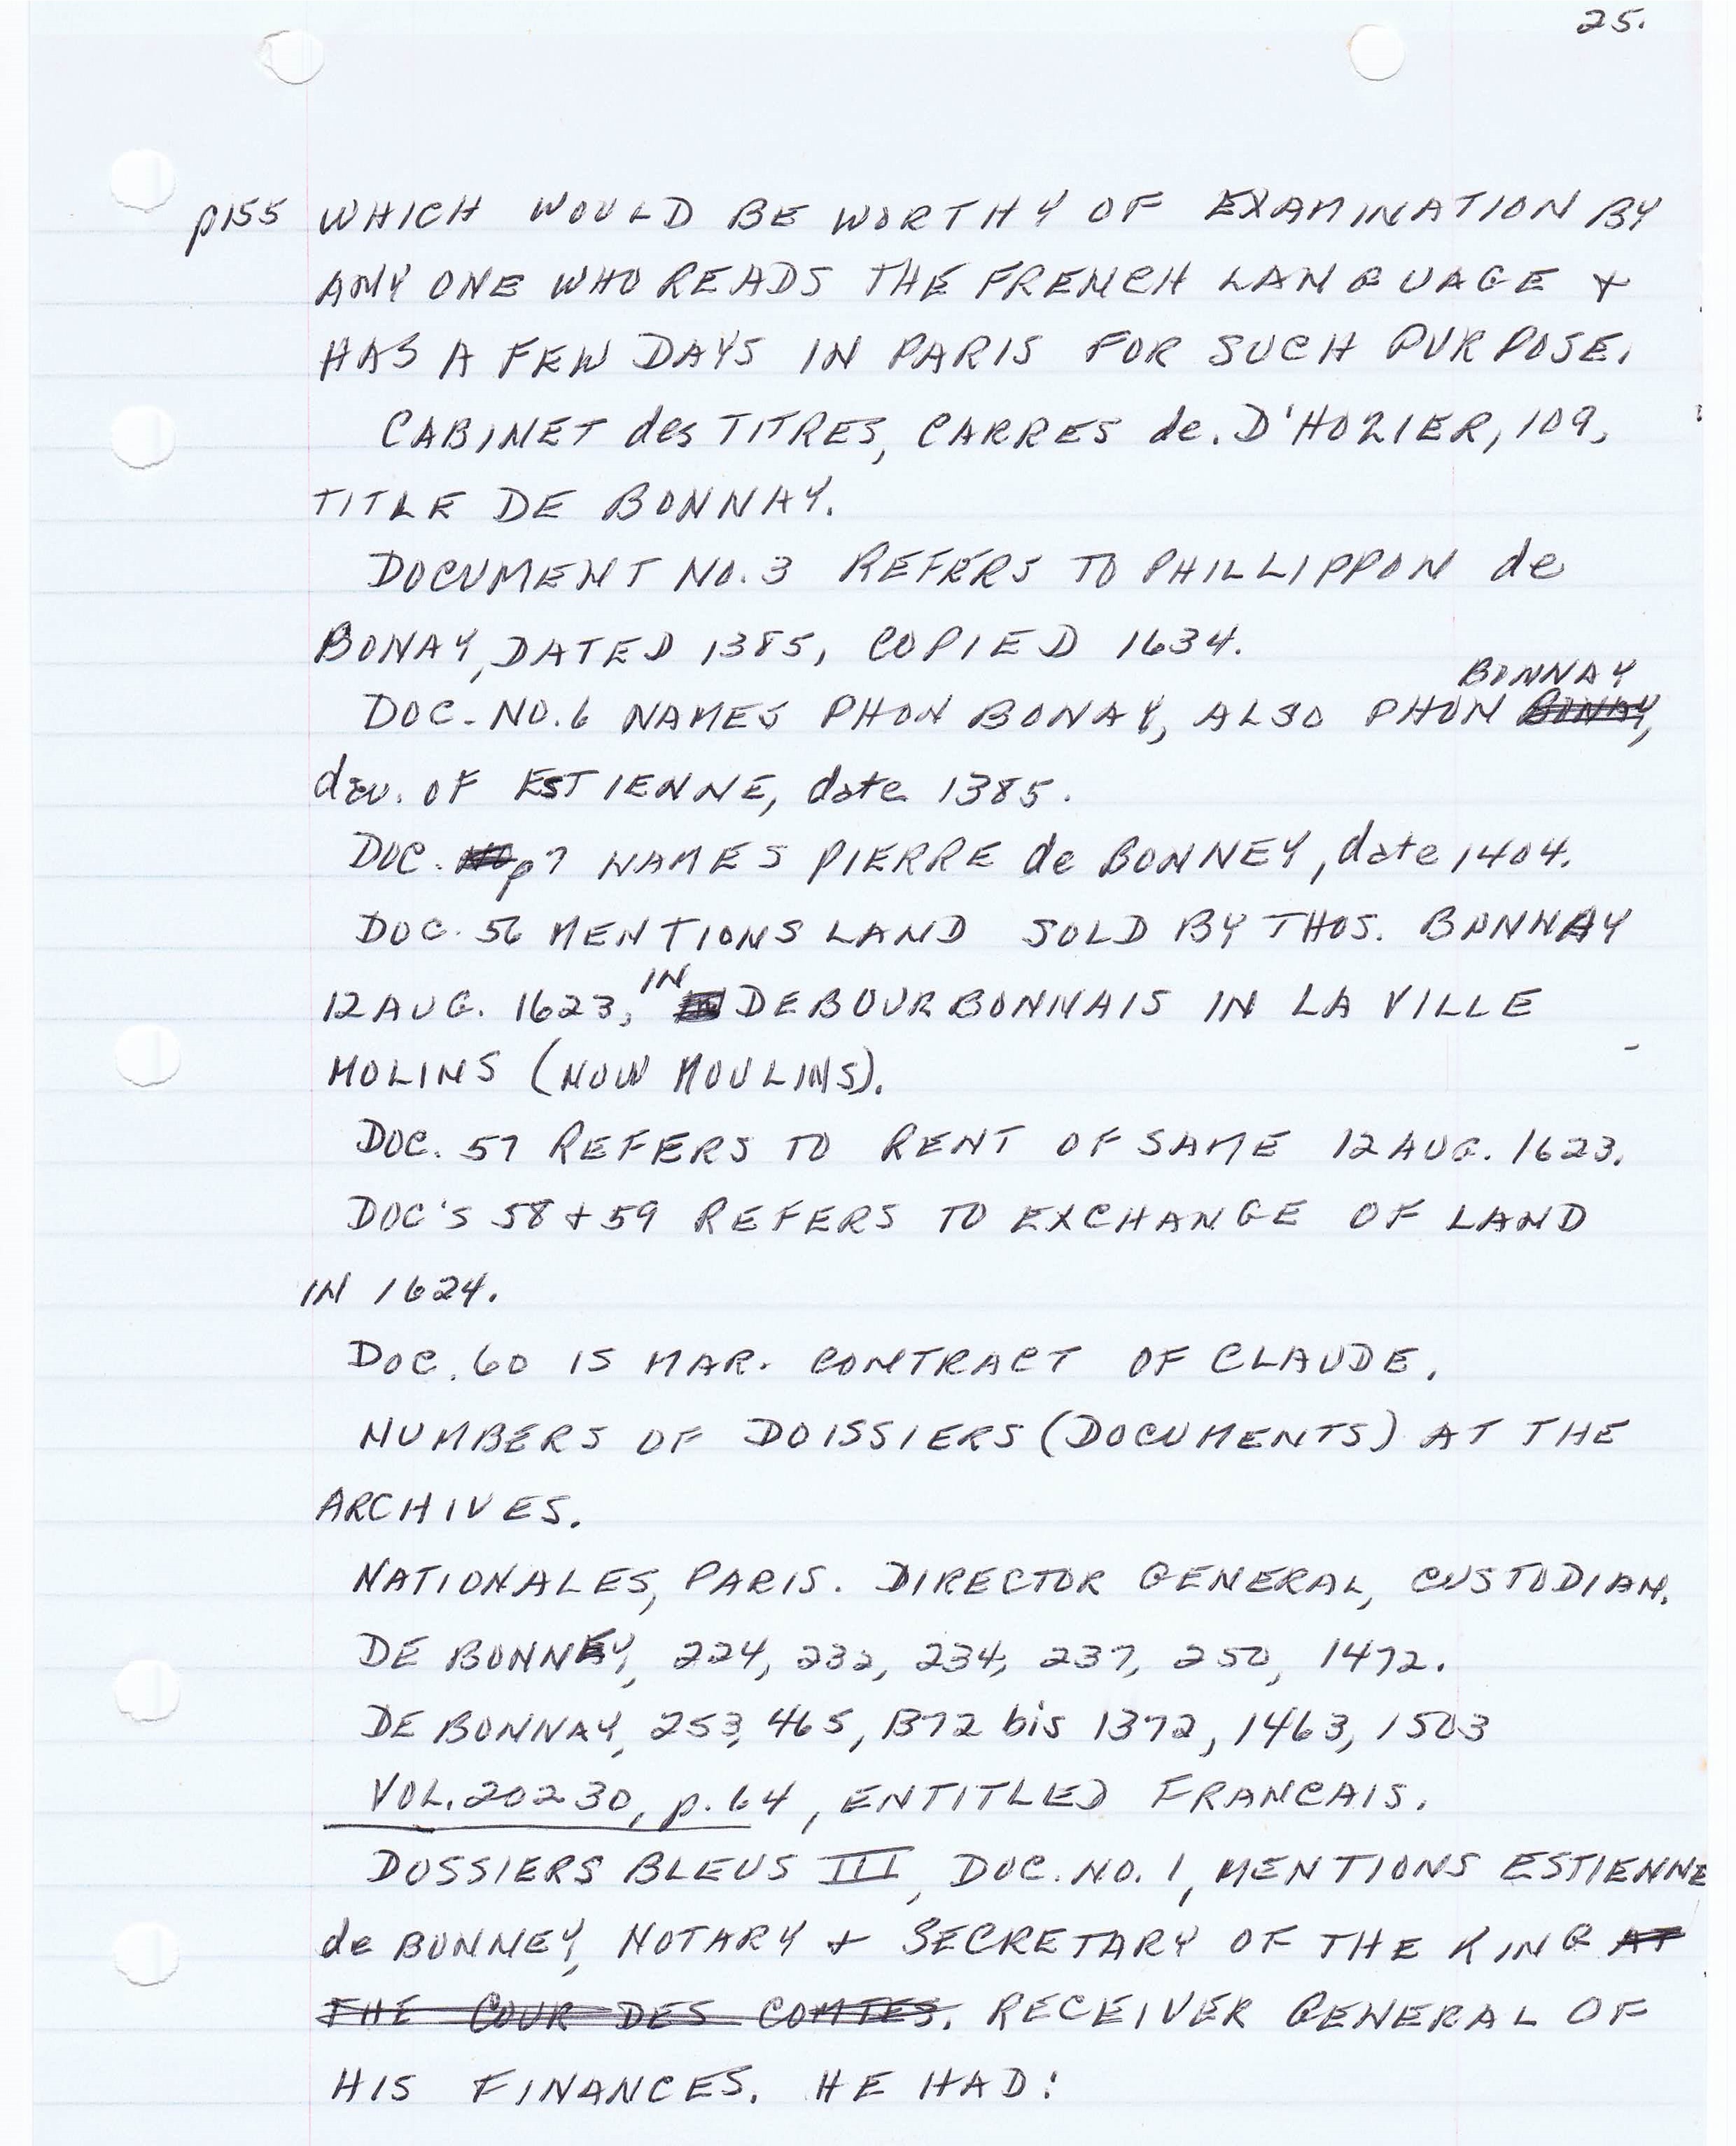 25.
p155 WHICH WOULD BE WORTHY OF EXAMINATION BY
ANY ONE WHO READS THE FRENCH LANGUAGE +
HAS A FEW DAYS IN PARIS FOR SUCH PURPOSE.
CABINET des TITRES, CARRES de. D'HOZIER, 109,
TITLE DE BONNAY.
DOCUMENT NO. 3 REFERS TO PHILLIPPON de
BONAY, DATED 1385, COPIED 1634.
BONNAY
DOC. NO. 6 NAMES PHON BONAY, ALSO PHON BONAY,
dau. OF ESTIENNE, date 1385.
DOC. NO p7 NAMES PIERRE de BONNEY, date 1404.
DOC. 56 MENTIONS LAND SOLD BY THOS. BONNAY
12 AUG. 1623, IN DEBOURBONNAIS IN LA VILLE
MOLINS (NOW MOULINS).
DOC. 57 REFERS TO RENT OF SAME 12 AUG. 1623.
DOC'S 58 + 59 REFERS TO EXCHANGE OF LAND
IN 1624.
DOC. 60 IS MAR. CONTRACT OF CLAUDE.
NUMBERS OF DOISSIERS (DOCUMENTS) AT THE
ARCHIVES.
NATIONALES, PARIS. DIRECTOR GENERAL, CUSTODIAN.
DE BONNEY, 224, 232, 234, 237, 250, 1472.
DE BONNAY, 253, 465, 1372 bis 1372, 1463, 1503
VOL. 20230, p. 64, ENTITLED FRANCAIS.
DOSSIERS BLEUS III, DOC. NO. 1, MENTIONS ESTIENNE
de BONNEY, NOTARY + SECRETARY OF THE KING AT
THE COUR DES COMTES. RECEIVER GENERAL OF
HIS FINANCES. HE HAD: